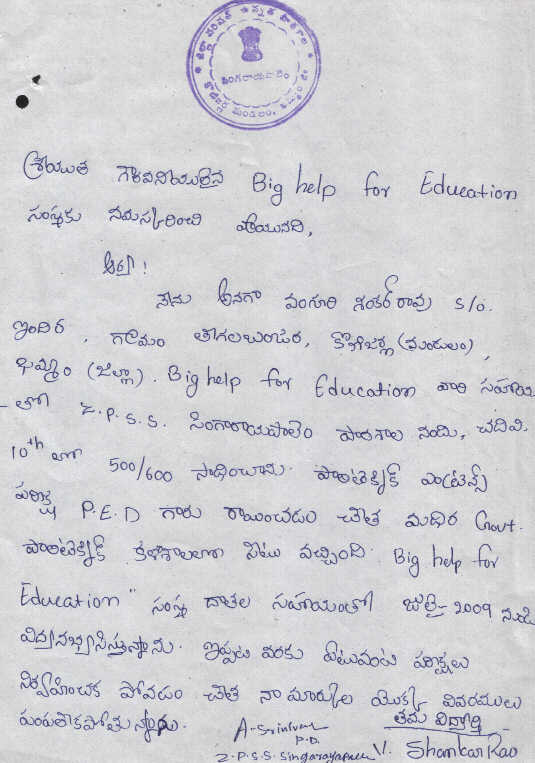 జిల్లా పరిషత్ ఉన్నత పాఠశాల
సింగరాయపాలెం
మండలం,
శ్రీయుత గౌరవనీయులైన Big help for Education
సంస్థకు నమస్కరించి వ్రాయునది,
ఆర్యా!
నేను అనగా వంగూరి శంకర్ రావు s/o.
ఇందిర, గ్రామం తాగలబంజర, (మండలం),
ఖమ్మం (జిల్లా). Big help for Education వారి సహాయ
-తో Z.P.S.S. సింగారాయపాలెం పాఠశాల నంది, చదివి.
10th లో 500/600 సాధించాను. పాలిటెక్నిక్ ఎంట్రెన్స్
పరీక్ష P.E.D గారు రాయించడం చేత మధిర Govt.
పాలిటెక్నిక్ కళాశాలలో సీటు వచ్చింది. Big help for
Education" సంస్థ దాతల సహాయంతో జులై-2009 నుండి
విద్యనభ్యసిస్తున్నాను. ఇప్పటి వరకు ఎటువంటి పరీక్షలు
నిర్వహించక పోవడం చేత నా మార్కుల యొక్క వివరములు
పంపలేకపోతున్నాను.
తమ విద్యార్థి
A. Srinivas
P.D.
Z.P.S.S. Singarayapalem V. Shankar Rao